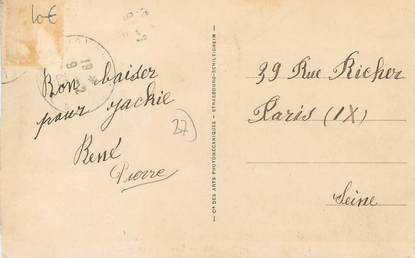 10€
Bon baiser
pour Jackie
René
Pierre
27
Cie DES ARTS PHOTOMÉCANIQUES - STRASBOURG-SCHILTIGHEIM
39 Rue Richer
Paris (IX)
Seine